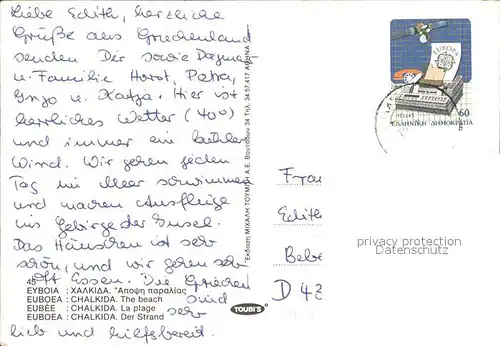 Liebe Edith, herzliche
Grüße aus Griechenland
senden Dir sowie Dagmar
u. Familie Horst, Petra,
Ingo u. Katja. Hier ist
herrliches Wetter (40°)
und immer ein kühler
Wind. Wir gehen jeden
Tag im Meer schwimmen
und machen Ausflüge
ins Gebirge der Insel.
Das Häuschen ist sehr
schön, und wir gehen sehr
oft Essen. Die Griechen
sind
sehr
lieb und hilfsbereit.
45
ΕΥΒΟΙΑ : ΧΑΛΚΙΔΑ. Ἄποψη παραλίας
EUBOEA : CHALKIDA. The beach
EUBÉE : CHALKIDA. La plage
EUBOEA : CHALKIDA. Der Strand
TOUBI'S
Ἔκδοση ΜΙΧΑΛΗ ΤΟΥΜΠΗ Α.Ε. Βουτάδων 34 Τηλ. 34.57.417 ΑΘΗΝΑ
EUROPA
HELLAS
60
ΕΛΛΗΝΙΚΗ ΔΗΜΟΚΡΑΤΙΑ
Frau
Edith
D 42
privacy protection
Datenschutz